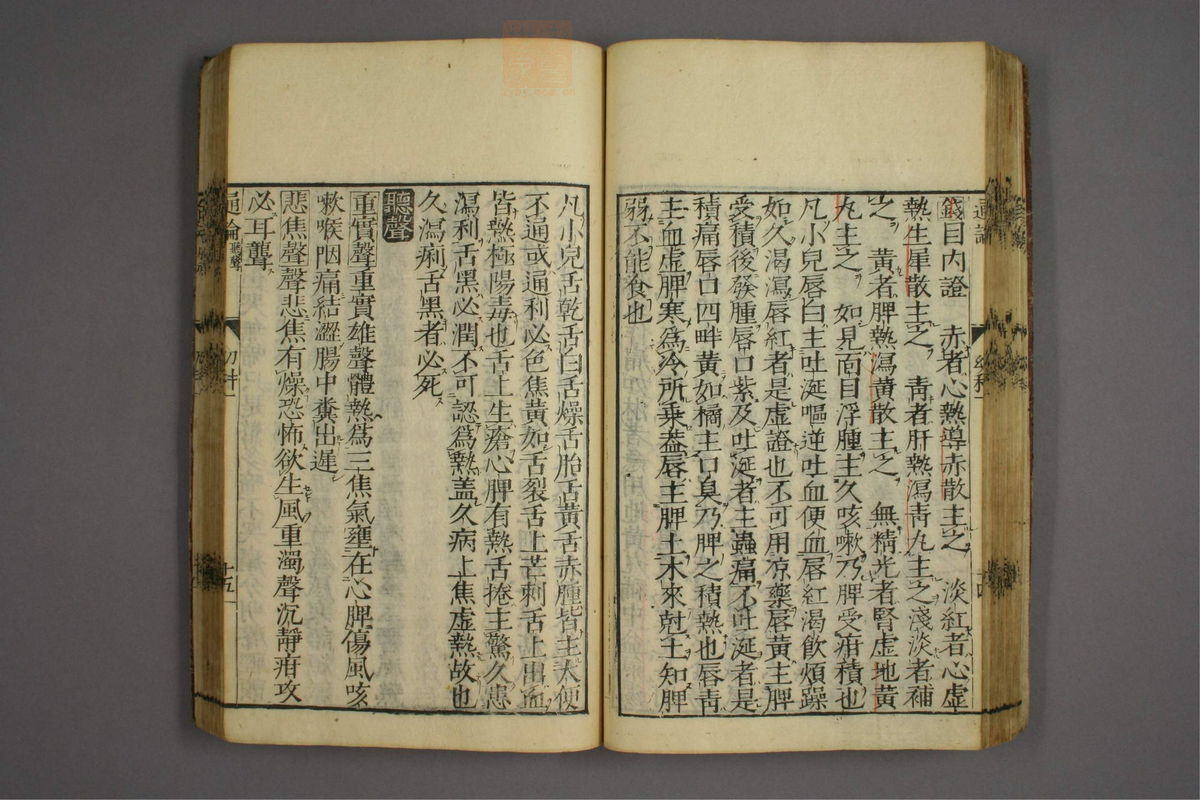 錢目內證　赤者心熱導赤散主之　淡紅者心虛
熱生犀散主之　靑者肝熱瀉靑丸主之淺淡者補
之　黃者脾熱瀉黃散主之　無精光者腎虛地黃
丸主之　如見面目浮腫主久咳嗽乃脾受疳積也
凡小兒唇白主吐涎嘔逆吐血便血唇紅渴飮煩躁
如久渴瀉唇紅者是虛證也不可用凉藥唇黃主脾
受積後發腫唇口紫及吐涎者主蟲痛不吐涎者是
積痛唇口四畔黃如橘主口臭乃脾之積熱也唇靑
主血虛脾寒爲冷所乘葢唇主脾土木來尅土知脾
弱不能食也
凡小兒舌乾舌白舌燥舌胎舌黃舌赤腫皆主大便
不通或通利必色焦黃如舌裂舌上芒刺舌上出血
皆熱極陽毒也舌上生瘡心脾有熱舌捲主驚久患
瀉利舌黑必潤不可認爲熱盖久病上焦虛熱故也
久瀉痢舌黑者必死
聽聲
重實聲重實雄聲體熱爲三焦氣壅在心脾傷風咳
嗽喉咽痛結澀腸中糞出遲
悲焦聲聲悲焦有燥恐怖欲生風重濁聲沉靜疳攻
必耳聾
通論聽聲
十五